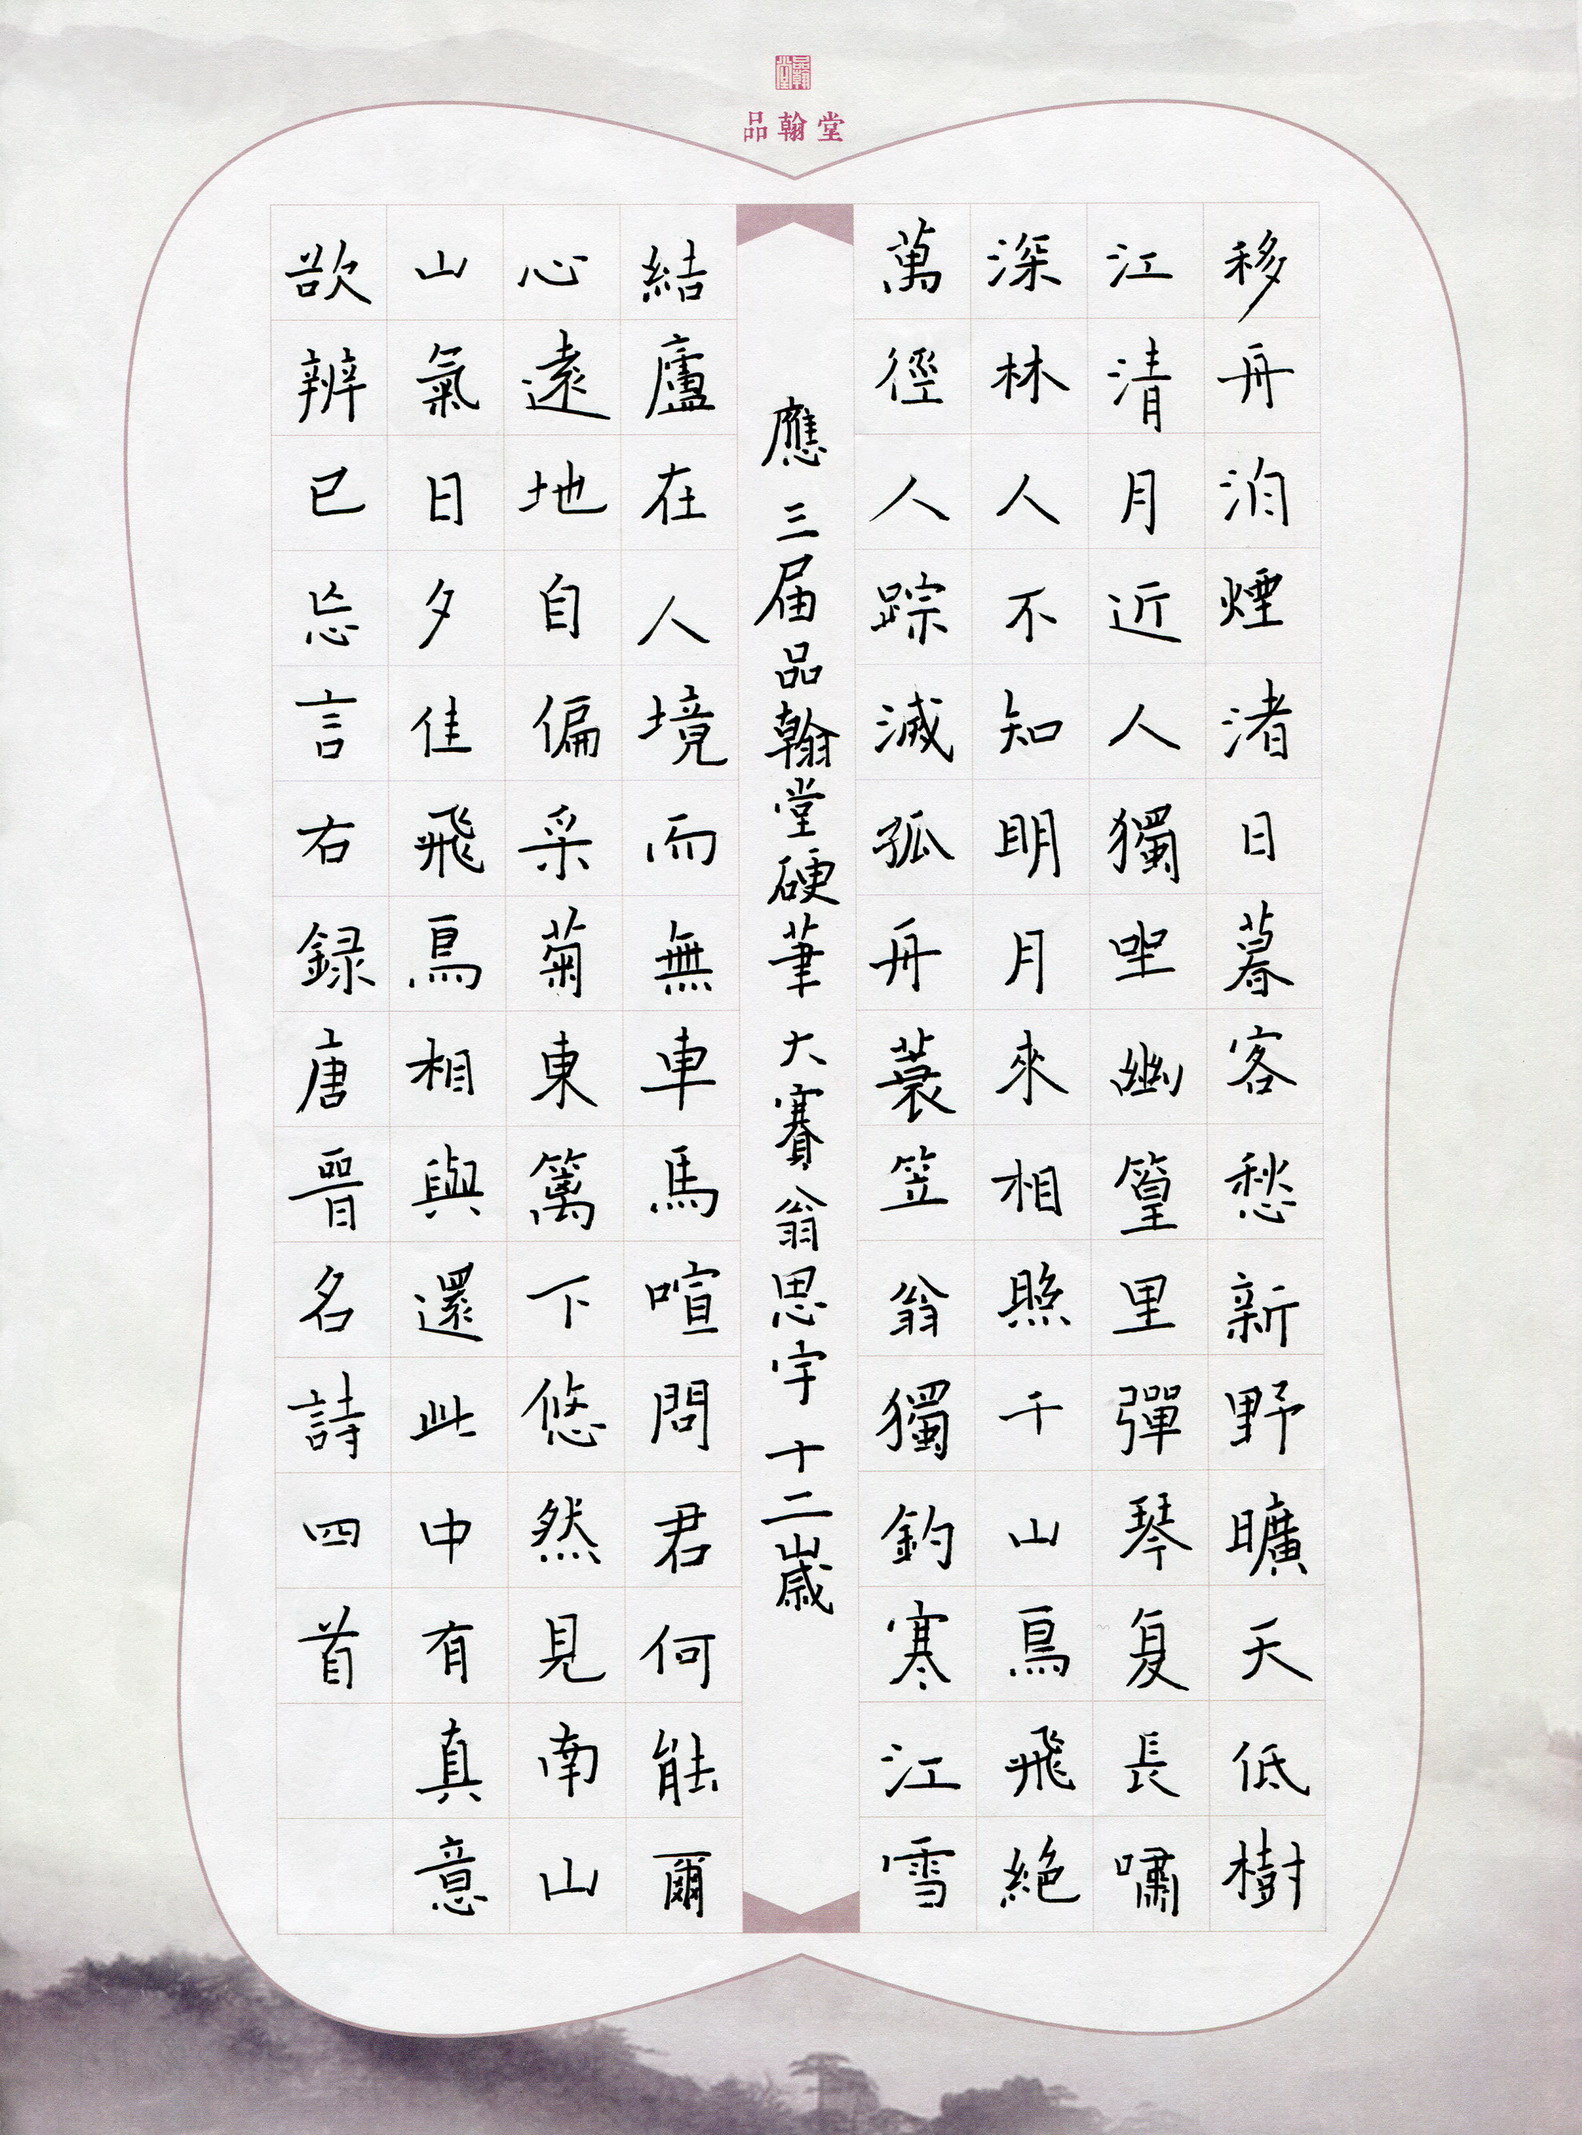 品翰堂
品翰堂
移舟泊煙渚日暮客愁新野曠天低樹
江清月近人獨坐幽篁里彈琴复長嘯
深林人不知明月來相照千山鳥飛絕
萬徑人踪滅孤舟蓑笠翁獨釣寒江雪
應三届品翰堂硬筆大賽翁思宇十二歲
結廬在人境而無車馬喧問君何能爾
心遠地自偏采菊東篱下悠然見南山
山氣日夕佳飛鳥相與還此中有真意
欲辨已忘言右録唐晉名詩四首